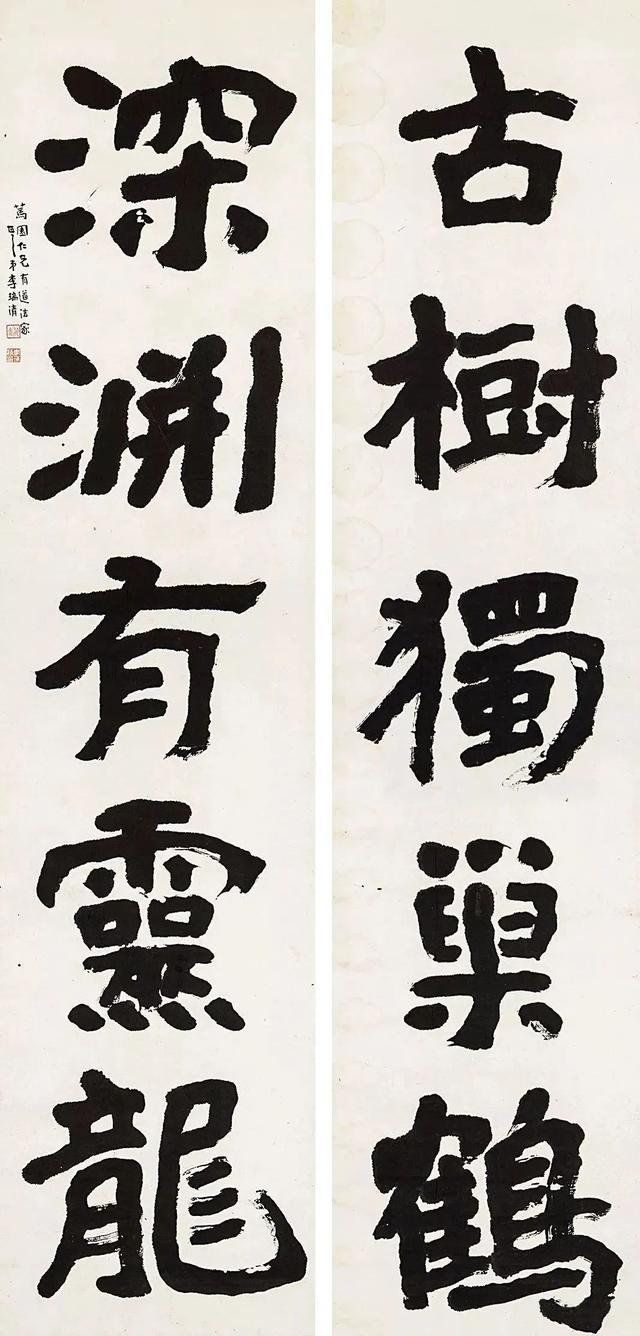 古樹獨巢鶴
深淵有靈龍
園仁兄有道法家
弟李瑞清